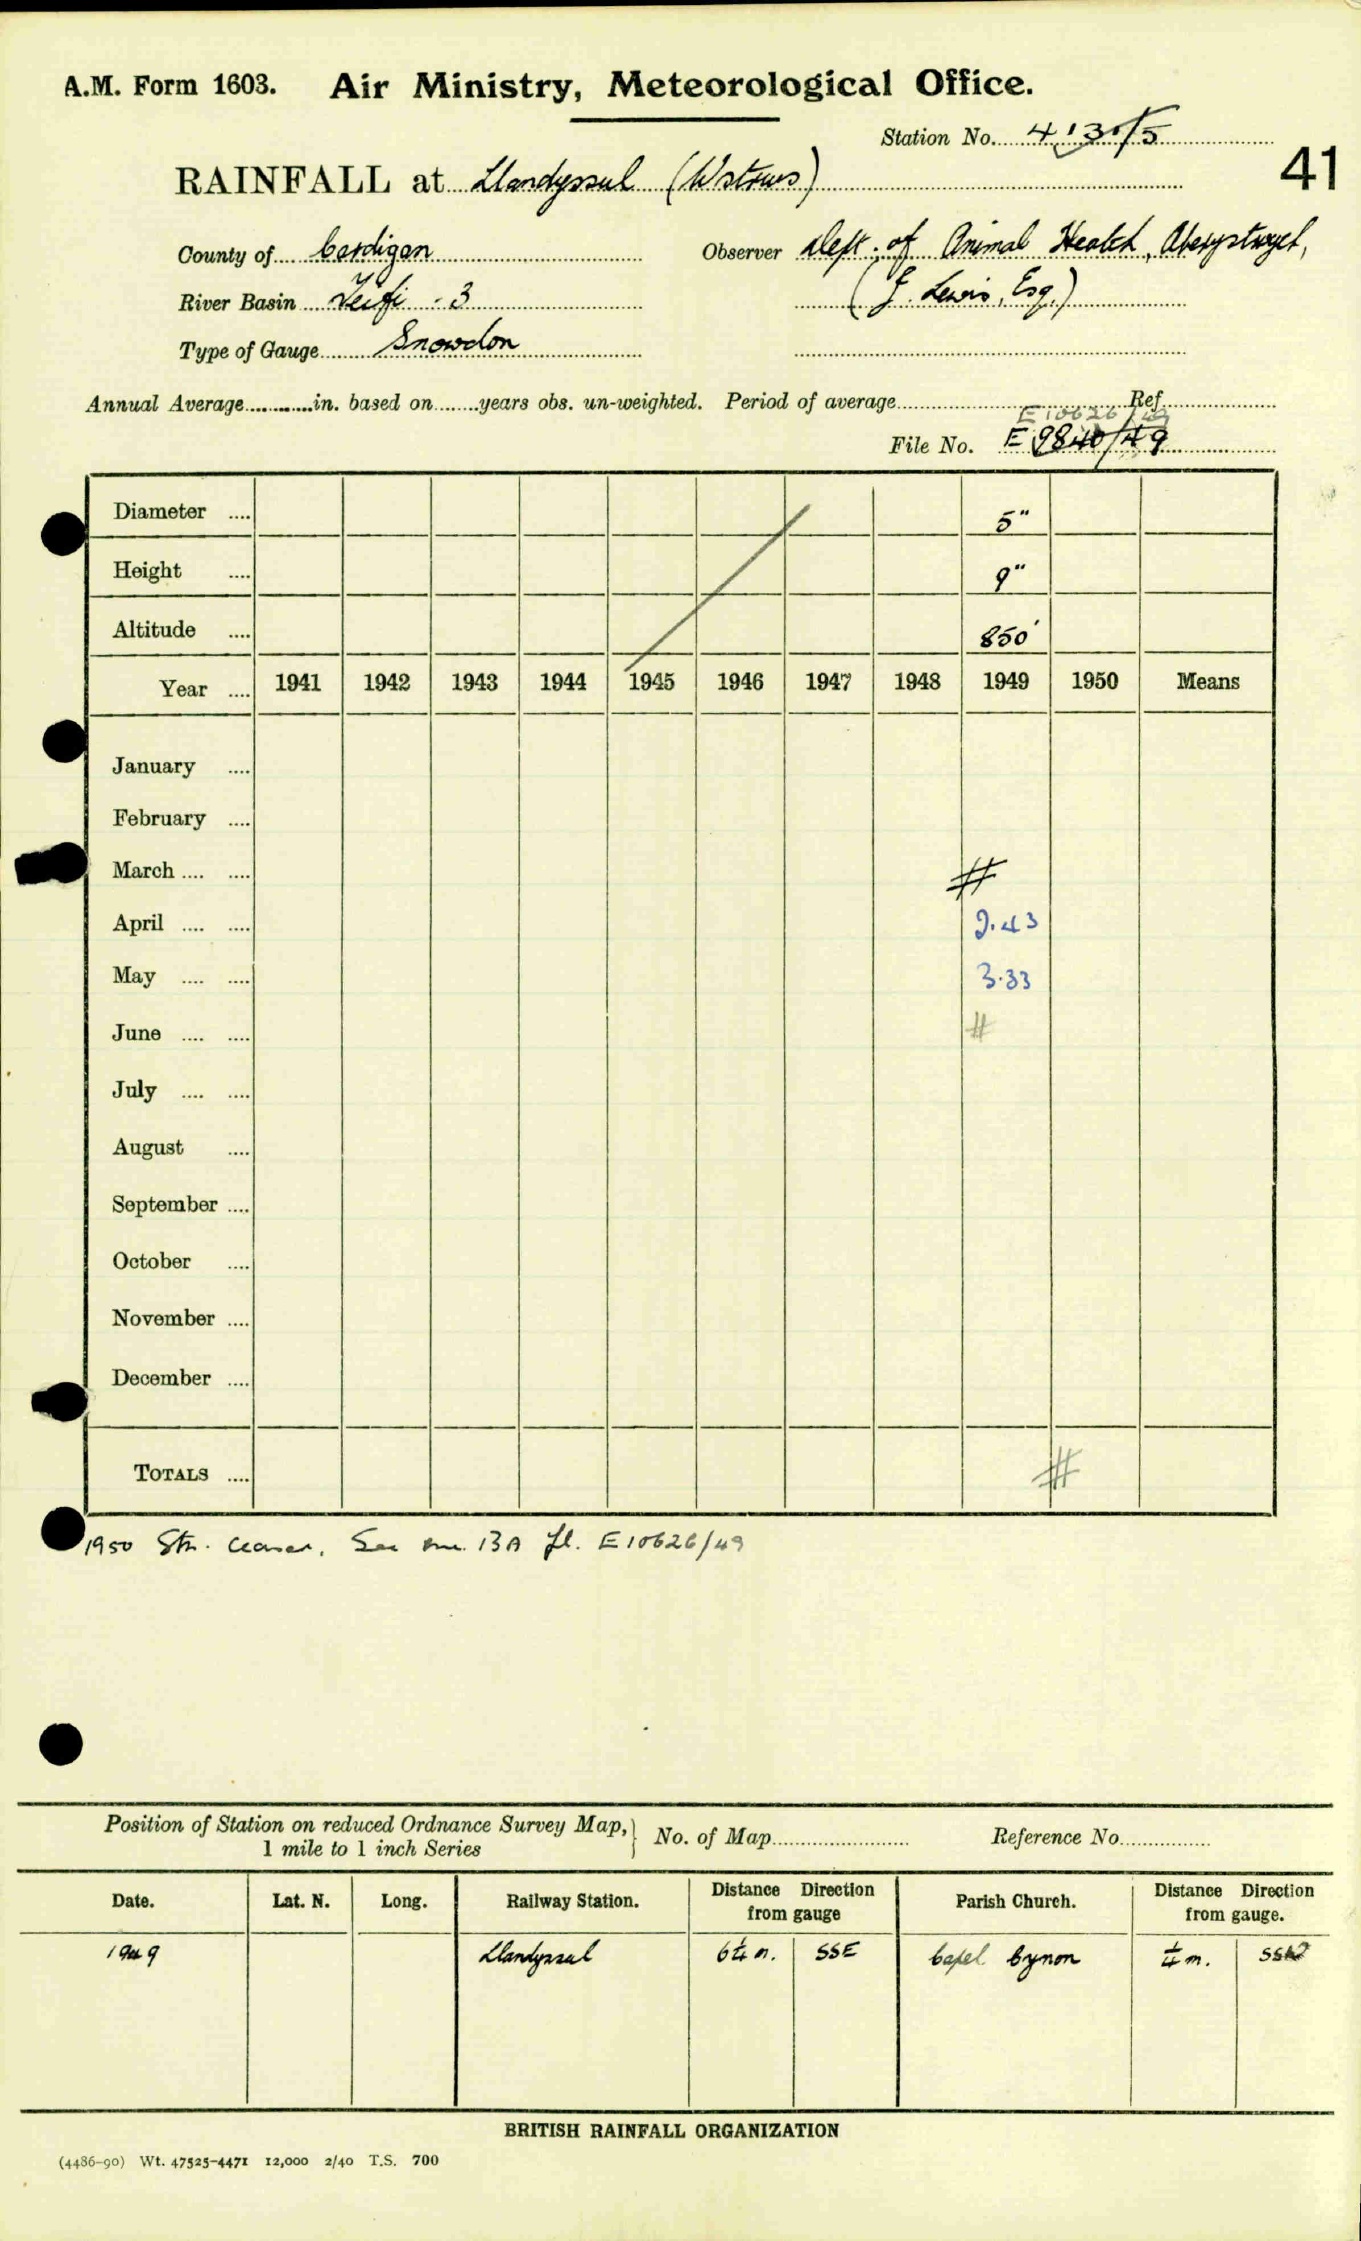 A.M. Form 1603. Air Ministry, Meteorological Office.
Station No. 413/5
41
RAINFALL at Llandyssul
County of Cardigan
Observer Dept. of Animal Health, Aberystwyth,
River Basin Teifi - 3
(J. Lewis, Esq.)
Type of Gauge Snowdon
Annual Average............in. based on........years obs. un-weighted. Period of average.................... Ref.
E 10626/49
File No. E 9840/49
Diameter .... 5"
Height .... 9"
Altitude .... 850'
Year .... 1941 1942 1943 1944 1945 1946 1947 1948 1949 1950 Means
January ....
February ....
March .... .... #
April .... .... 2.43
May .... .... 3.33
June .... .... #
July .... ....
August ....
September ....
October ....
November ....
December ....
TOTALS .... #
1950 Stn. ceased. See 13A fl. E10626/49
Position of Station on reduced Ordnance Survey Map,} No. of Map........................ Reference No................
1 mile to 1 inch Series
Date. Lat. N. Long. Railway Station. Distance Direction from gauge Parish Church. Distance Direction from gauge.
1949 Llandyssul 6¼ m. SSE Capel Cynon ¼ m. SSW
BRITISH RAINFALL ORGANIZATION
(4486-90) Wt. 47525-4471 12,000 2/40 T.S. 700